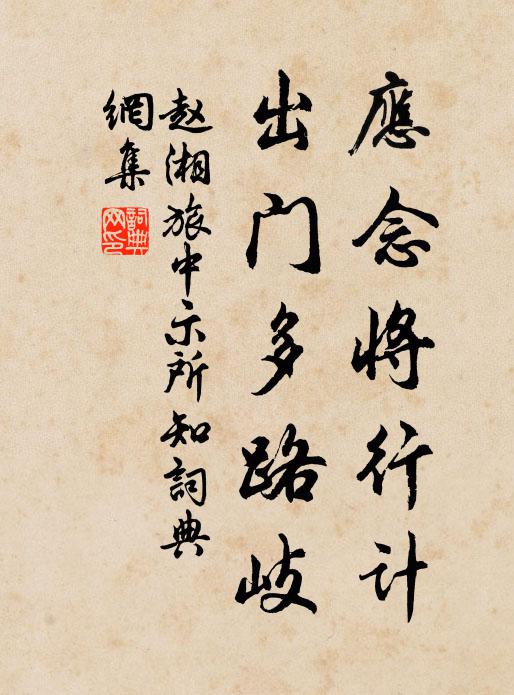 應念將行計
出门多路岐
赵湘旅中示所知詞典
網集
詞典
网印